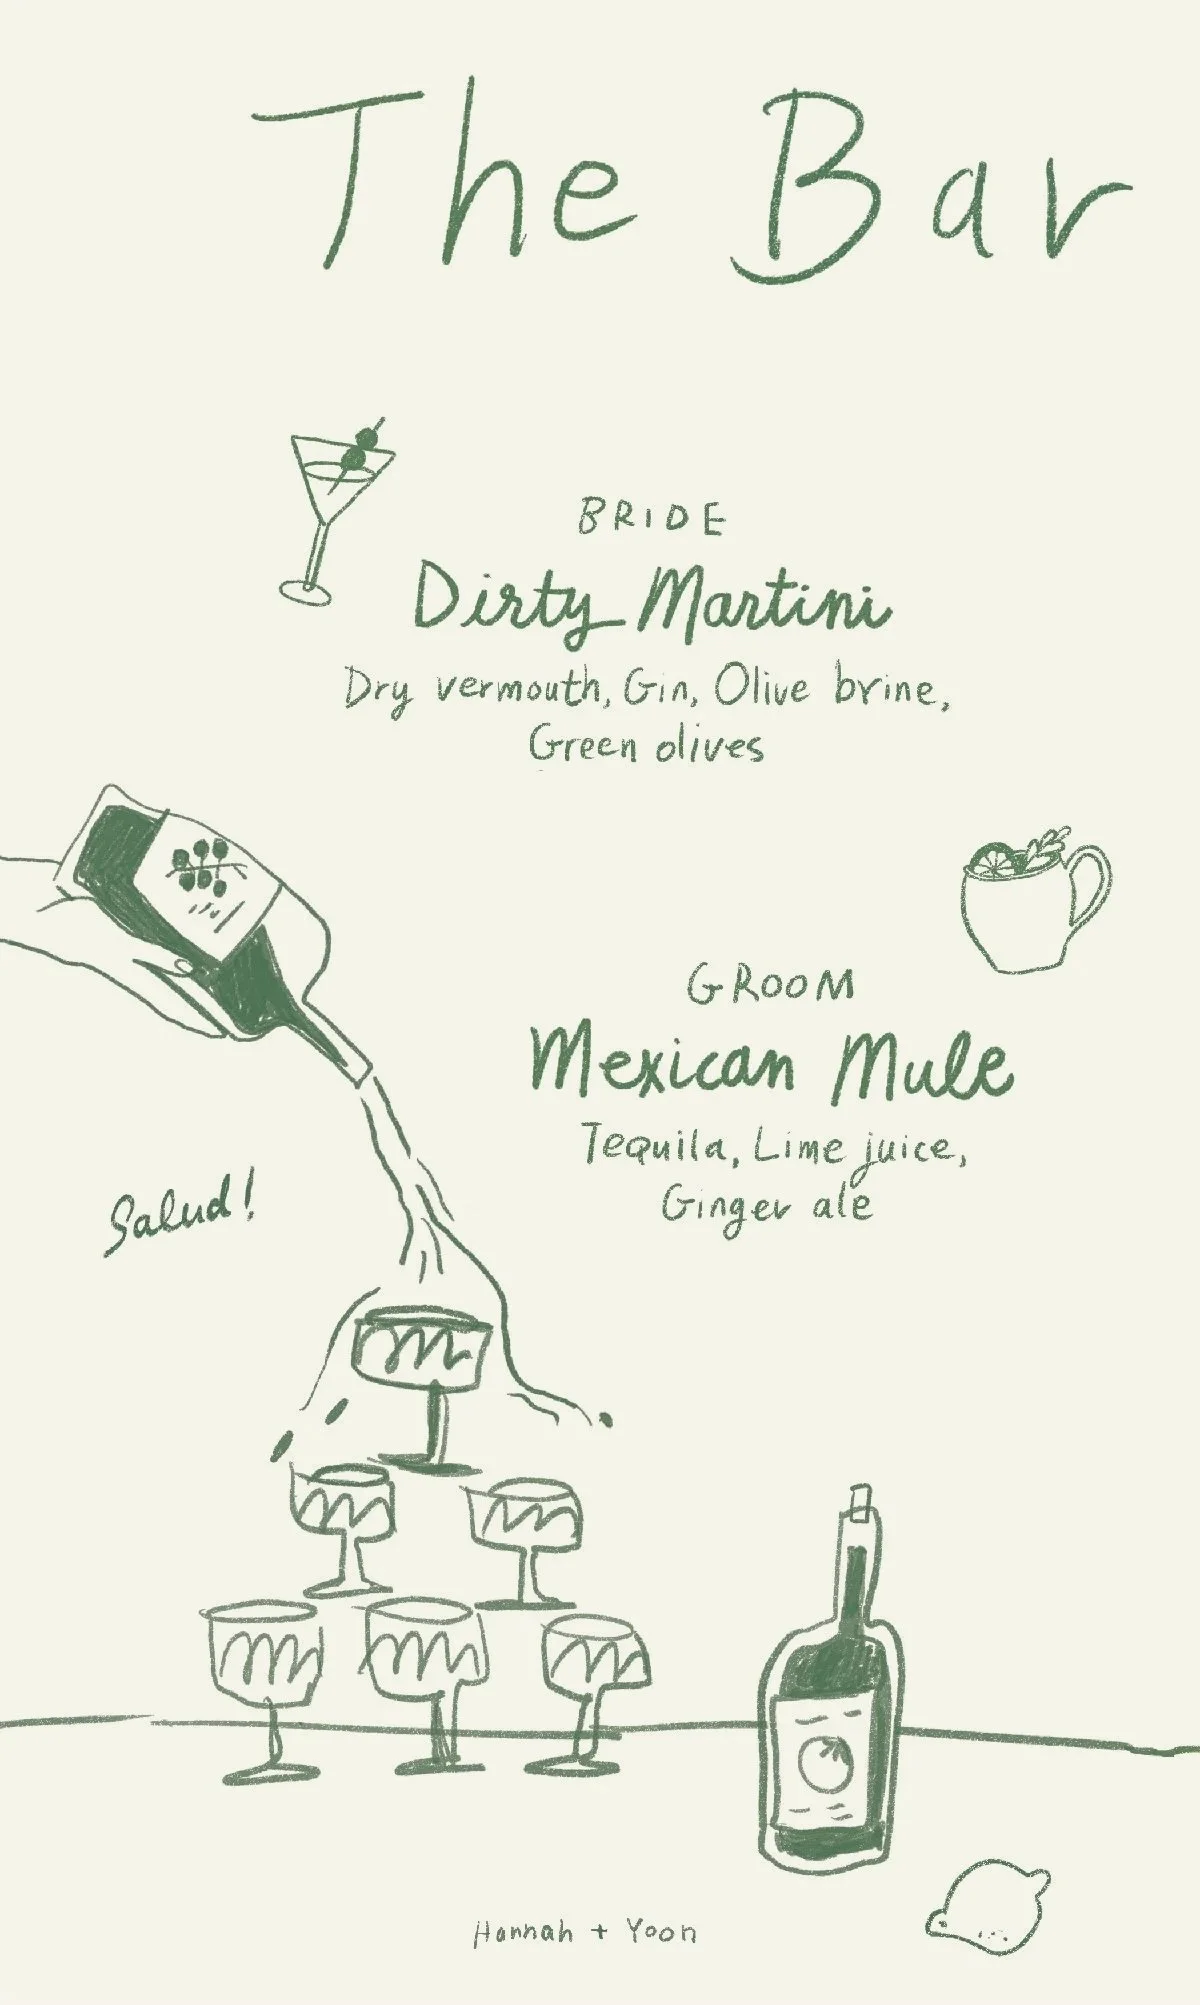 The Bar
BRIDE
Dirty Martini
Dry vermouth, Gin, Olive brine,
Green olives
GROOM
Mexican Mule
Tequila, Lime juice,
Ginger ale
Salud!
Hannah + Yoon